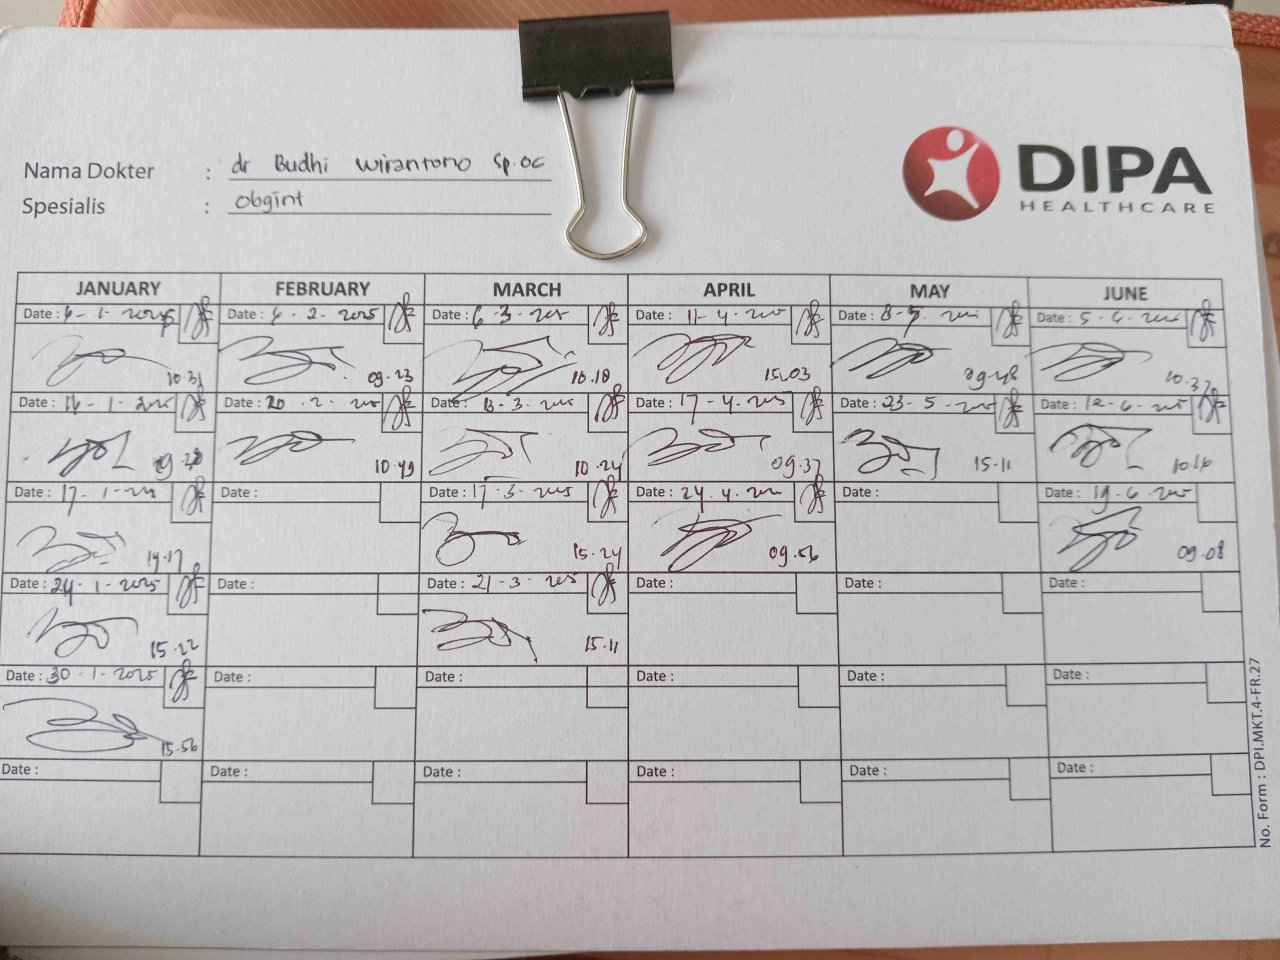 Nama Dokter : dr Budhi Wirantono Sp.OG
Spesialis : Obgint
DIPA
HEALTHCARE
JANUARY FEBRUARY MARCH APRIL MAY JUNE
Date : 6-1-2025 Date : 6-2-2025 Date : 6-3-2025 Date : 11-4-2025 Date : 8-5-2025 Date : 5-6-2025
10.31 09.23 10.18 15.03 09.48 10.37
Date : 16-1-2025 Date : 20-2-2025 Date : 13-3-2025 Date : 17-4-2025 Date : 23-5-2025 Date : 12-6-2025
09.28 10.49 10.24 09.37 15.11 10.16
Date : 17-1-2025 Date : Date : 17-3-2025 Date : 24.4.2025 Date : Date : 19-6-2025
14.17 15.24 09.56 09.08
Date : 24-1-2025 Date : Date : 21-3-2025 Date : Date : Date :
15.22 15.11
Date : 30-1-2025 Date : Date : Date : Date : Date :
15.56
Date : Date : Date : Date : Date : Date :
No. Form : DPI.MKT.4-FR.27